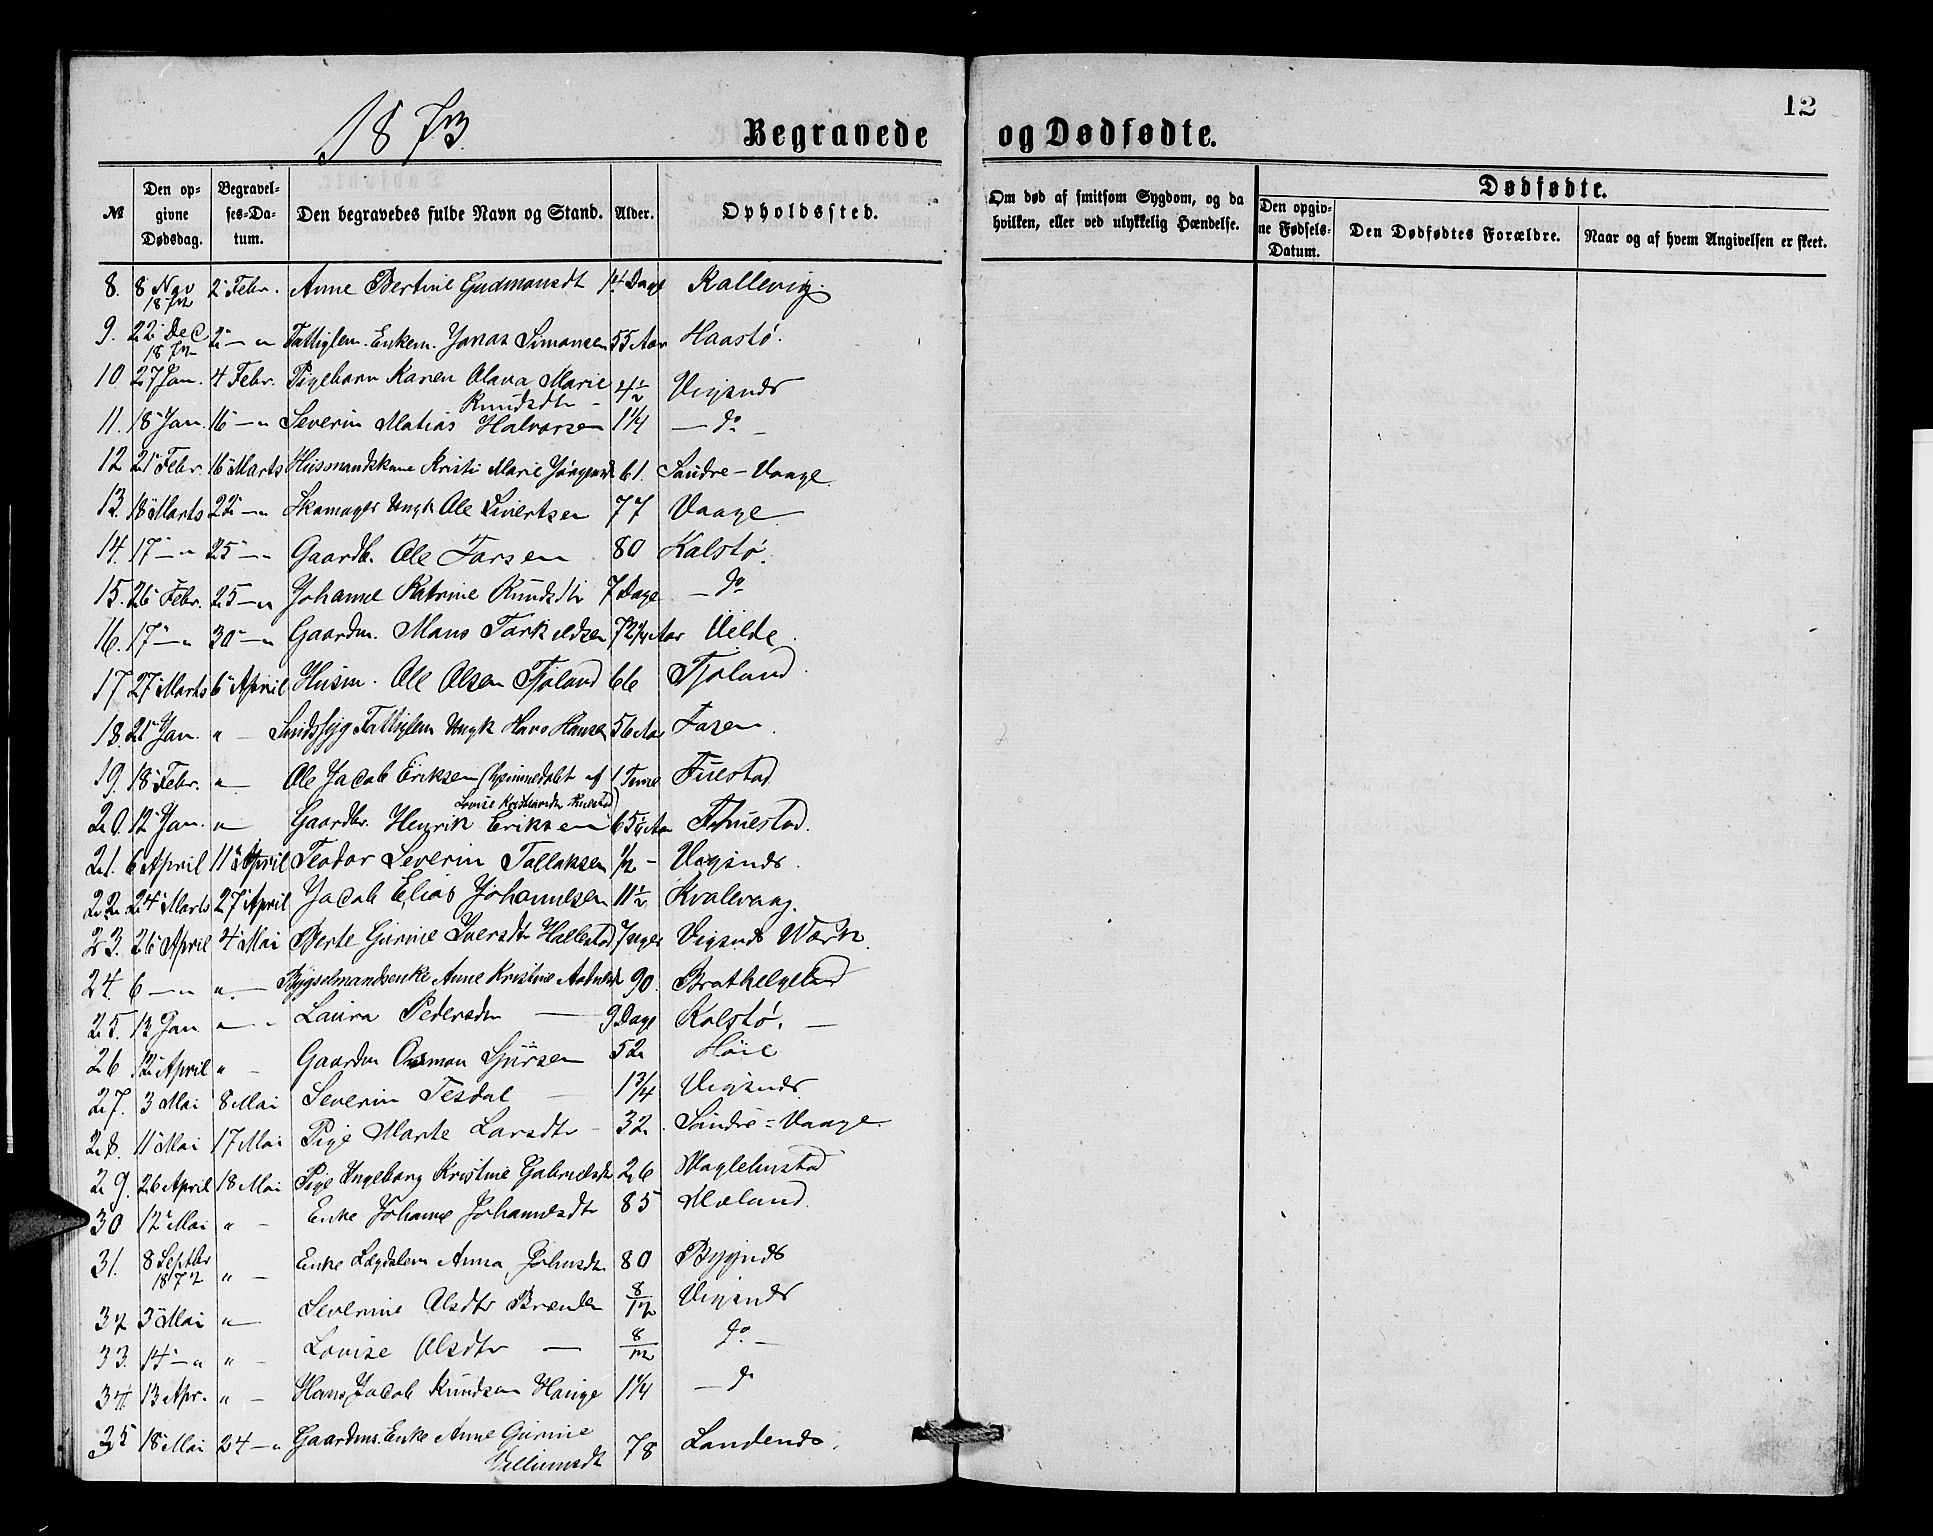 12
1873.
Begravede og Dødfødte.
№ Den opgivne Dødsdag. Begravelses-Datum. Den begravedes fulde Navn og Stand. Alder. Opholdssted. Om død af smitsom Sygdom, og da hvilken, eller ved ulykkelig Hændelse. Dødfødte.
Den opgivne Fødsels-Datum. Den Dødfødtes Forældre. Naar og af hvem Angivelsen er skeet.
8. 8 Nov 1872 2 Febr. Anne Bertine Gudmunsdt 14 Dage Kallevig.
9. 22 Dec 1872 2 — " Fattiglem. Enkem. Jonas Simonsen 55 Aar Haastø.
10 27 Jan. 4 Febr. Pigebarn Karen Olava Marie Knudsdtr 4½ Vigsnes
11. 18 Jan. 16 — " Severin Matias Halvorsen 1¼ — do —
12 21 Febr. 16 Marts Husmandskone Kristi Marie 61. Søndre-Vaage
13. 18 Marts 22 — " Skomager Ungk Ole Sivertsen 77 Vaage
14. 17 — " 25 — " Gaardb. Ole Larsen 80 Kalstø.
15. 26 Febr. 25 — " Johanne Katrine Knudsdtr 7 Dage — do
16. 17 — " 30 — " Gaardm. Mons Torkeldsen 72¼ Aar Velde.
17 27 Marts 6 April Husm. Ole Olsen Tjøland 66 Tjøland
18. 21 Jan. " — Sindssyg Fattiglem Ungk Hans Hansen 56 Aar
19. 18 Febr. " — Ole Jacob Eriksen (hjemmedøbt af 1 Time
Lovise
20. 12 Jan. " — Gaardbr. Henrik Eriksen
21. 6 April 11 April Teodor Severin Tollaksen ½ — Vigsnes.
22. 24 Marts 27 April Jacob Elias Johannesen 11½ Kvalevaag.
23. 26 April 4 Mai Berte Gurine Iversdtr Hallestad 7 uger Vigsnes Værk.
24. 6 — " " — Bygselmandsenke Anne Kristine 90. Brathelgeland
25. 13 Jan " — " Laura Pedersdtr — 9 Dage Kalstø. —
26 12 April " — Gaardm Osmon Sjursen 52 Høie
27. 3 Mai 8 Mai Severin Tesdal — 1¾ Vigsnes
28. 11 Mai 17 Mai Pige Marte Larsdtr — 32 Søndre=Vaage.
29. 26 April 18 Mai Pige Ingeborg Kristine Gabrielsdtr 26
30 12 Mai " — Enke Johanne Johannesdtr 85 Mæland.
31. 8 Septbr 1872 " — Enke Lægdslem Anna Johnsdtr 80 Bygnes
32 3 Mai " — Severine Olsdtr Brænden 8/12 Vigsnes
33. 14 — " " — Lovise Olsdtr — 8/12 do —
34 13 Apr. " — Hans Jacob Knudsen Hauge 1¼ — do
35 18 Mai 24 — " Gaardms. Enke Anne Gurine Villumsdt 78 Landenes.